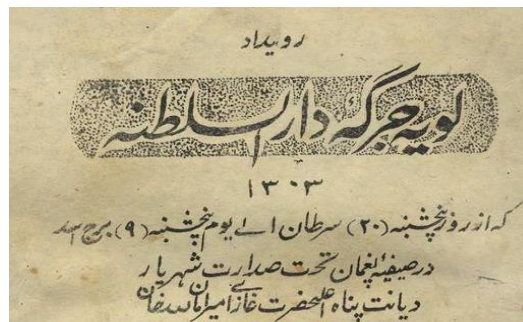 رویداد
لویه جرگهٔ دارالسلطنه
۱۳۰۳
که از روز پنچشنبه (۲۰) سرطان الی یوم پنچشنبه (۹) برج اسد
در صیفیهٔ پغمان تحت صدارت شهریار
دیانت پناه اعلیحضرت غازی امیر امان الله خان